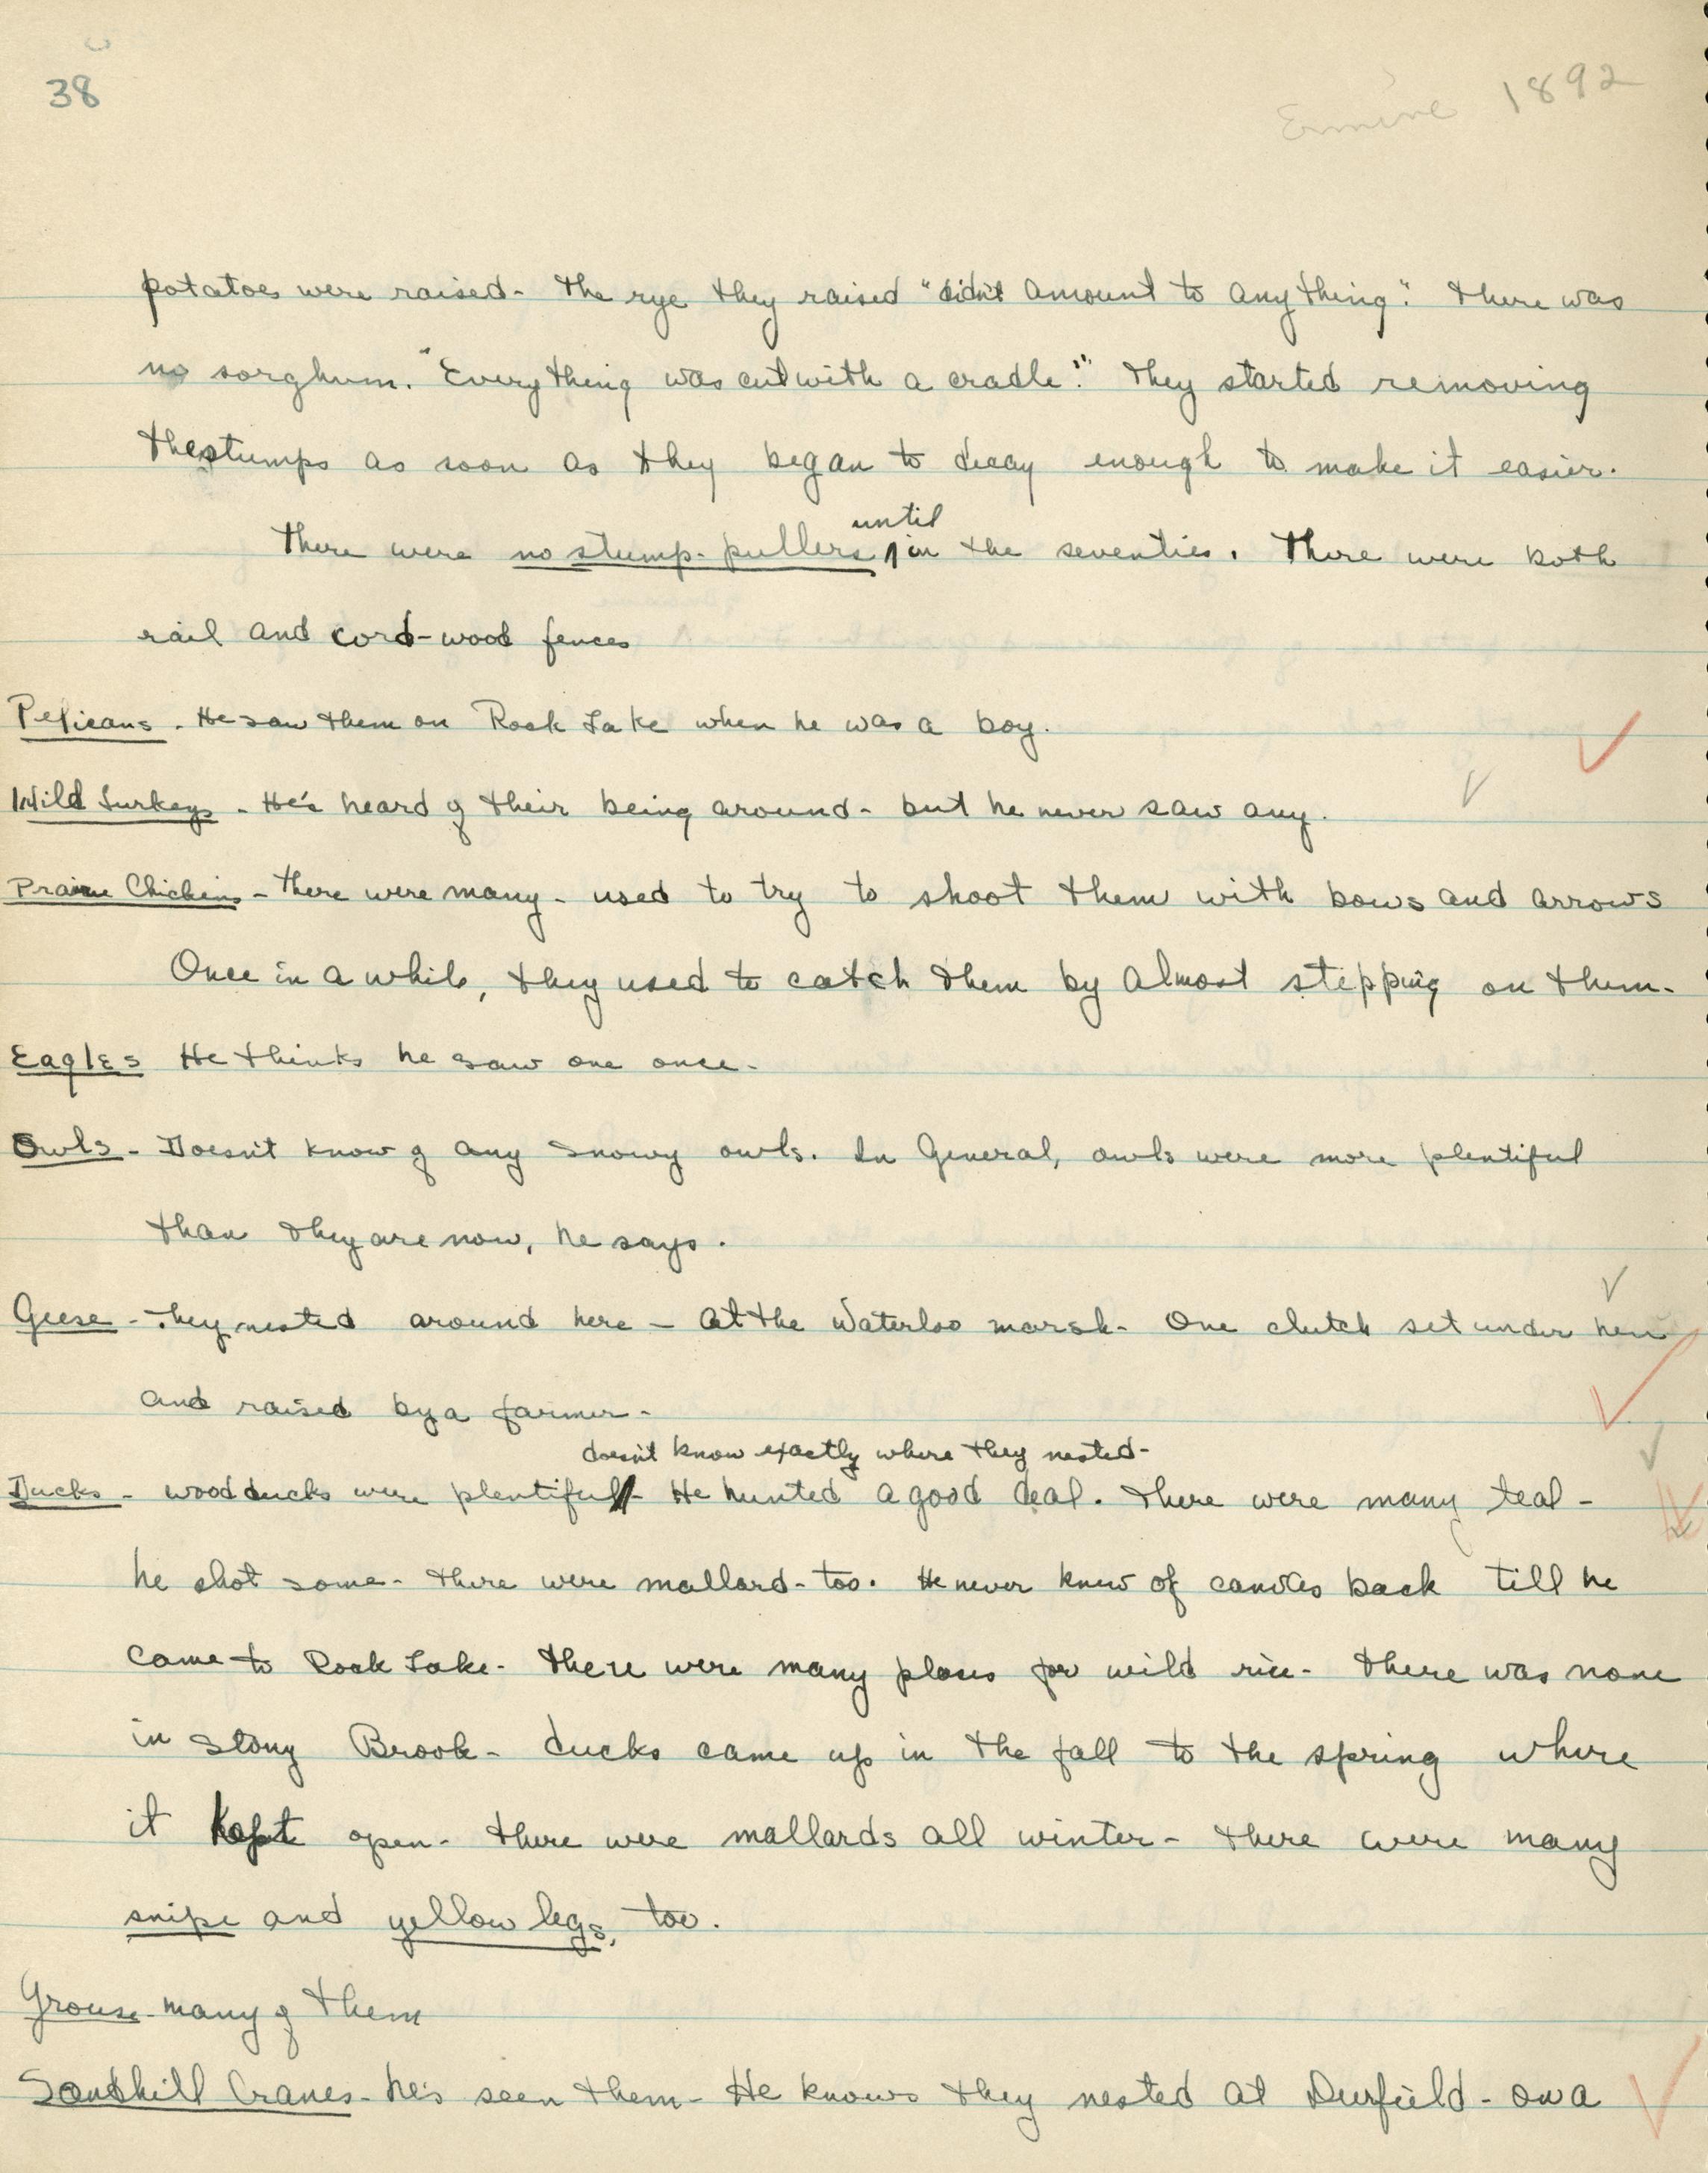 38
Ermine 1892
potatoes were raised - The rye they raised "didn't amount to anything". There was
no sorghum. "Everything was cut with a cradle". They started removing
the stumps as soon as they began to decay enough to make it easier.
until
There were no stump-pullers in the seventies. There were both
rail and cord-wood fences
Pelicans - He saw them on Rock Lake when he was a boy.
Wild Turkeys - He's heard of their being around - but he never saw any.
Prairie Chickens - There were many - used to try to shoot them with bows and arrows
Once in a while, they used to catch them by almost stepping on them -
Eagles He thinks he saw one once -
Owls - Doesn't know of any snowy owls. In General, owls were more plentiful
than they are now, he says.
Geese - They nested around here - at the Waterloo marsh - One clutch set under hen
and raised by a farmer -
doesn't know exactly where they nested -
Ducks - wood ducks were plentiful - He hunted a good deal. There were many teal -
he shot some - There were mallard - too. He never knew of canvas back till he
came to Rock Lake - There were many places for wild rice - There was none
in Stony Brook - ducks came up in the fall to the spring where
it kept open - There were mallards all winter - There were many
snipe and yellow legs, too.
Grouse - many of them
Sandhill Cranes - he's seen them - He knows they nested at Deerfield - on a